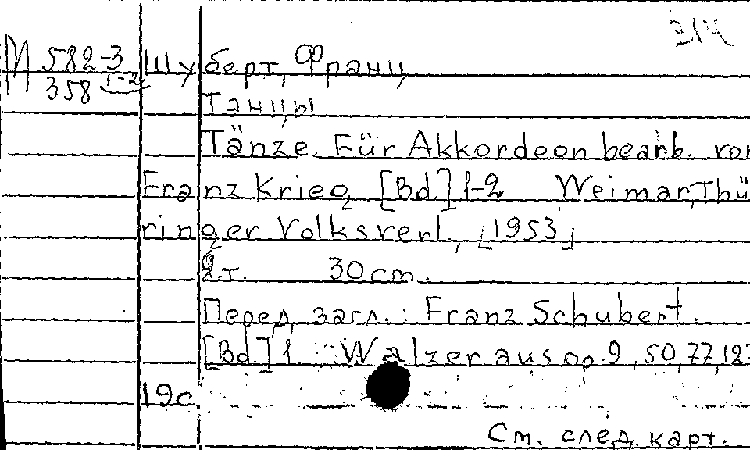 314
М 582-3 Шуберт, Франц
358 1-2
Танцы
Tänze. Für Akkordeon bearb. von
Franz Krieg [Bd] 1-2 Weimar, Thü
ringer Volksverl., [1953]
2 т. 30 cm.
Перед загл.: Franz Schubert.
[Bd] 1 Walzer aus op. 9, 50, 77, 127
19 с.
См. след. карт.